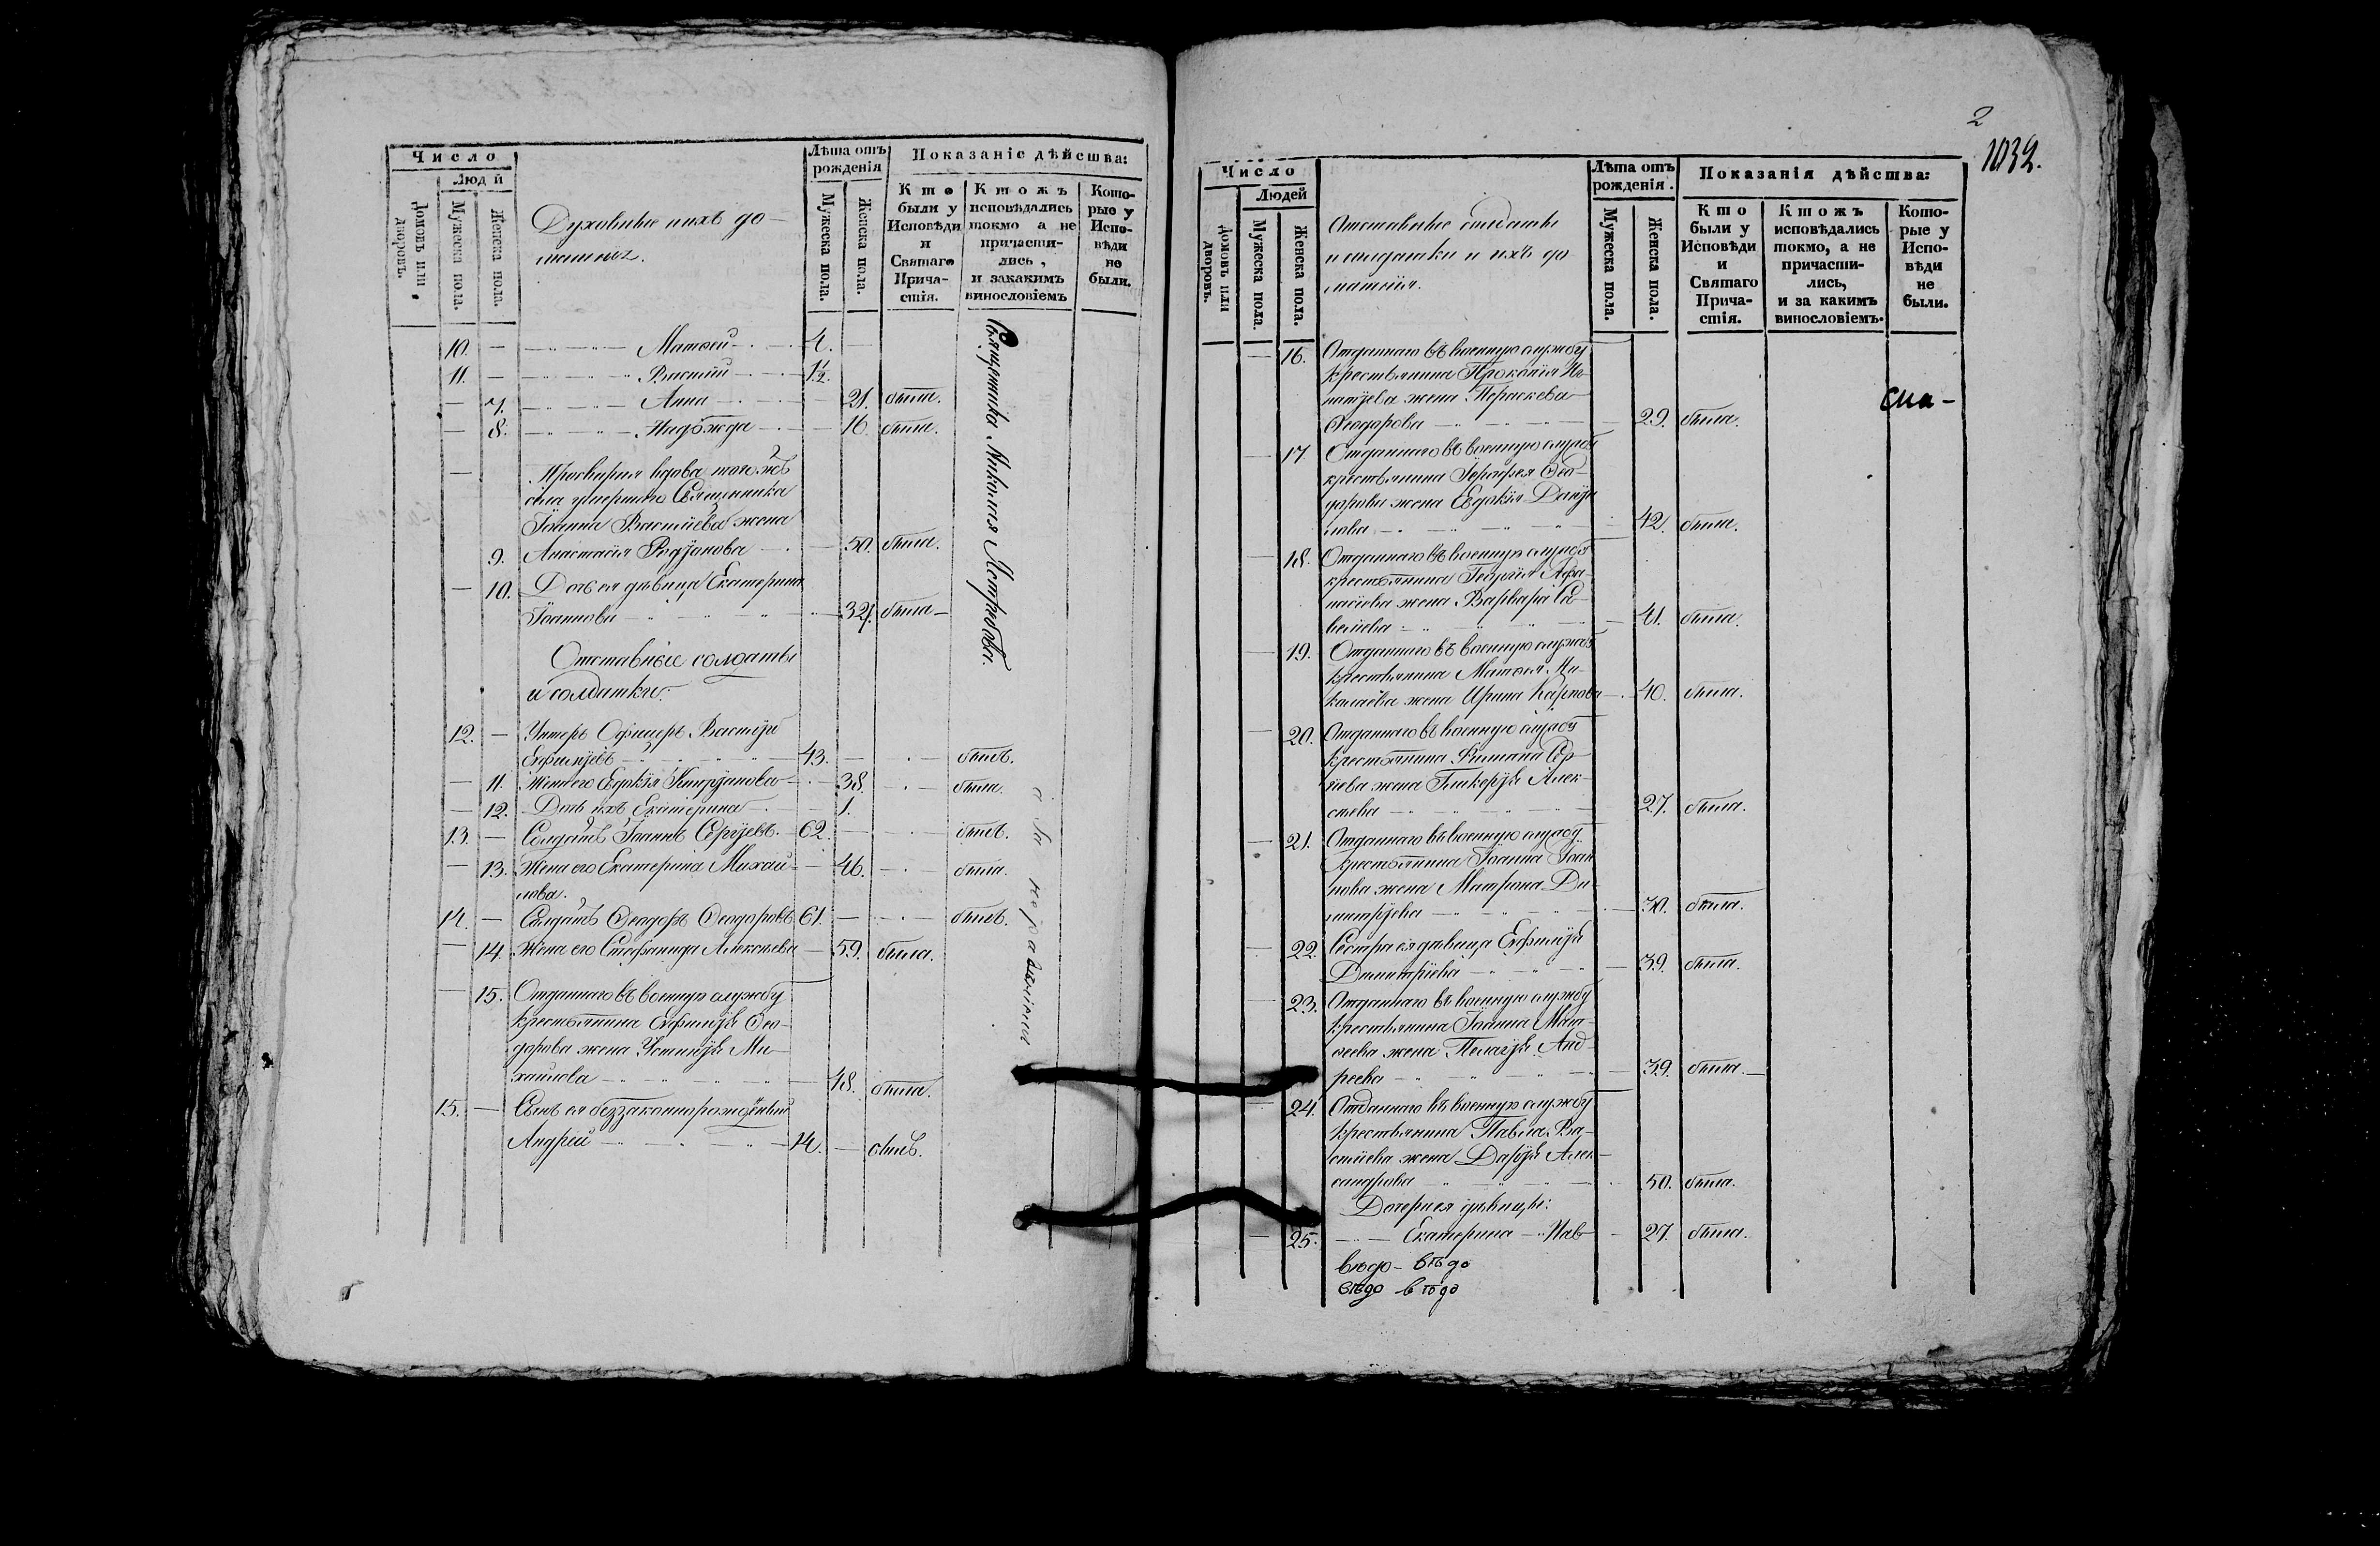 Число
Людй
Домовъ или дворовъ.
Мужеска пола.
Женска пола.
Духовные ихъ до-
машніи.
Лѣта отъ рожденія
Мужеска пола.
Женска пола.
Показаніе дѣйства:
Кто были у Исповѣди и Святаго Причастія.
Ктожъ исповѣдались токмо а не причастились, и закакимъ винословіемъ
Которые у Исповѣди не были.
10. — Матѳей 4. —
11. — Василій 1 1/2.
— 7. Анна — 21. была.
— 8. Надѣжда — 16. была.
— Просвирня вдова того жъ
села умершаго Священника
Іоанна Васильева жена
9. Анастасія Родіонова — 50. была.
— 10. Дочь ея дѣвица Екатерина
Іоаннова — 32. была
Отставные солдаты
и солдатки.
12. — Унтеръ Офицеръ Василій
Ефиміевъ 43. — былъ.
— 11. Жена его Евдокія Кипріянова — 38. была.
— 12. Дочь ихъ Екатерина — 1.
13. — Солдатъ Іоаннъ Сергіевъ. 62. — былъ.
— 13. Жена его Екатерина Михай-
лова. — 46. была.
14. — Солдатъ Ѳеодоръ Ѳеодоровъ 61. — былъ.
— 14. Жена его Стефанида Алексѣева — 59. была.
— 15. Отданнаго въ военную службу
крестьянина Ефимія Ѳео-
дорова жена Устинія Ми-
хайлова — 48. была.
15. — Сынъ ея беззаконнорожденный
Андрей 14. — былъ.
Священника Ястребова.
2
1032.
Число
Людей
Домовъ или дворовъ.
Мужеска пола.
Женска пола.
Отставные солдаты
и солдатки и ихъ до
машнія.
Лѣта отъ рожденія.
Мужеска пола.
Женска пола.
Показанія дѣйства:
Кто были у Исповѣди и Святаго Причастія.
Ктожъ исповѣдались токмо, а не причастились, и за какимъ винословіемъ.
Которые у Исповѣди не были.
— 16. Отданнаго въ военную службу
крестьянина Прокопія Иг-
натіева жена Параскева
Ѳеодорова — 29. была.
— 17. Отданнаго въ военную службу
крестьянина Ѳео-
дорова жена Евдокія Даніи
лова — 42. была.
— 18. Отданнаго въ военную службу
крестьянина Георгія Афа-
насіева жена Варвара Са-
веліева — 41. была.
— 19. Отданнаго въ военную службу
крестьянина Матѳея Ни-
колаева жена Ирина Карпова — 40. была.
— 20. Отданнаго въ военную службу
крестьянина Сер-
гіева жена Гликерія Алек-
сѣева — 27. была.
— 21. Отданнаго въ военную службу
крестьянина Іоанна Іоан
нова жена Матрона Ди-
митріева — 30. была.
22. Сестра ея дѣвица Евфимія
Димитріева — 39. была.
— 23. Отданнаго въ военную службу
крестьянина Іоанна Мат-
ѳеева жена Пелагія Анд-
реева — 39. была.
— 24. Отданнаго въ военную службу
крестьянина Павла Ва-
сильева жена Дарія Алек-
сандрова — 50. была.
Дочери ея дѣвицы:
— 25. Екатерина Пав — 27. была.